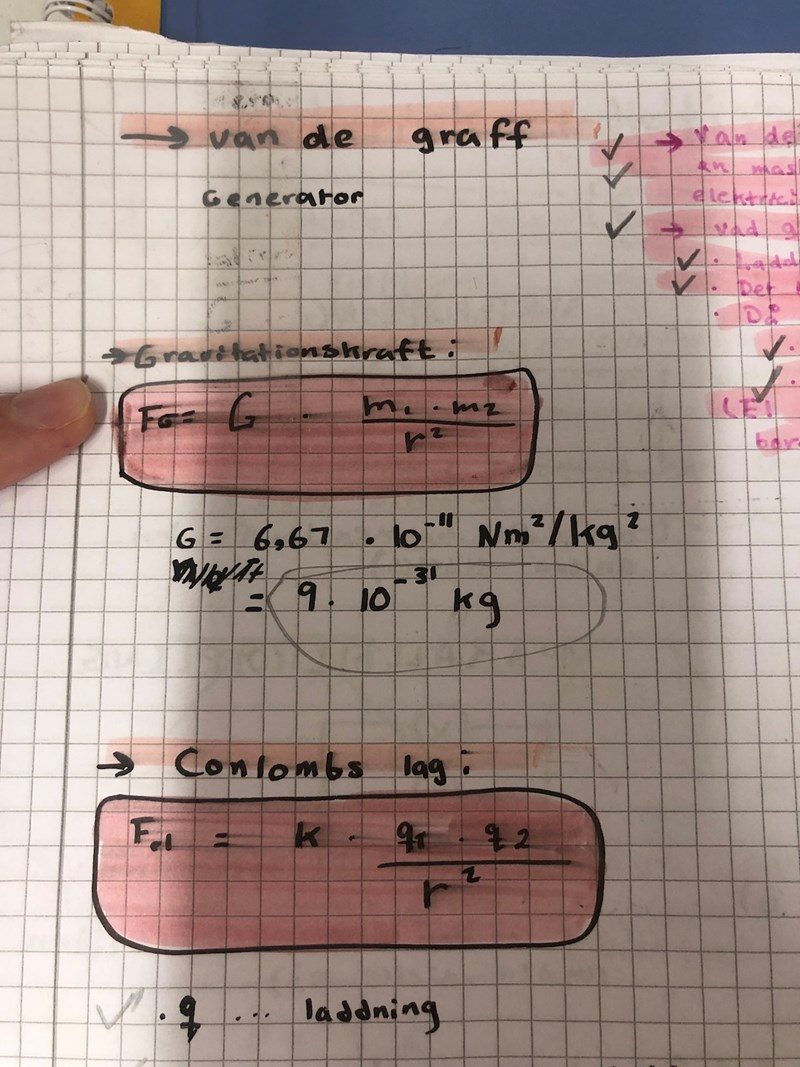 → van de graff
Generator
→ Gravitationskraft:
FG = G · m1 · m2 / r²
G = 6,67 · 10⁻¹¹ Nm²/kg²
= 9 · 10⁻³¹ kg
→ Conlombs lag:
Fel = k · q1 · q2 / r²
✓ · q ... laddning
✓ → Van de
✓ en mas
elektrici
✓ → vad g
✓ · Ladd
✓ · Det
· Då
✓ ·
✓ ·
(E)